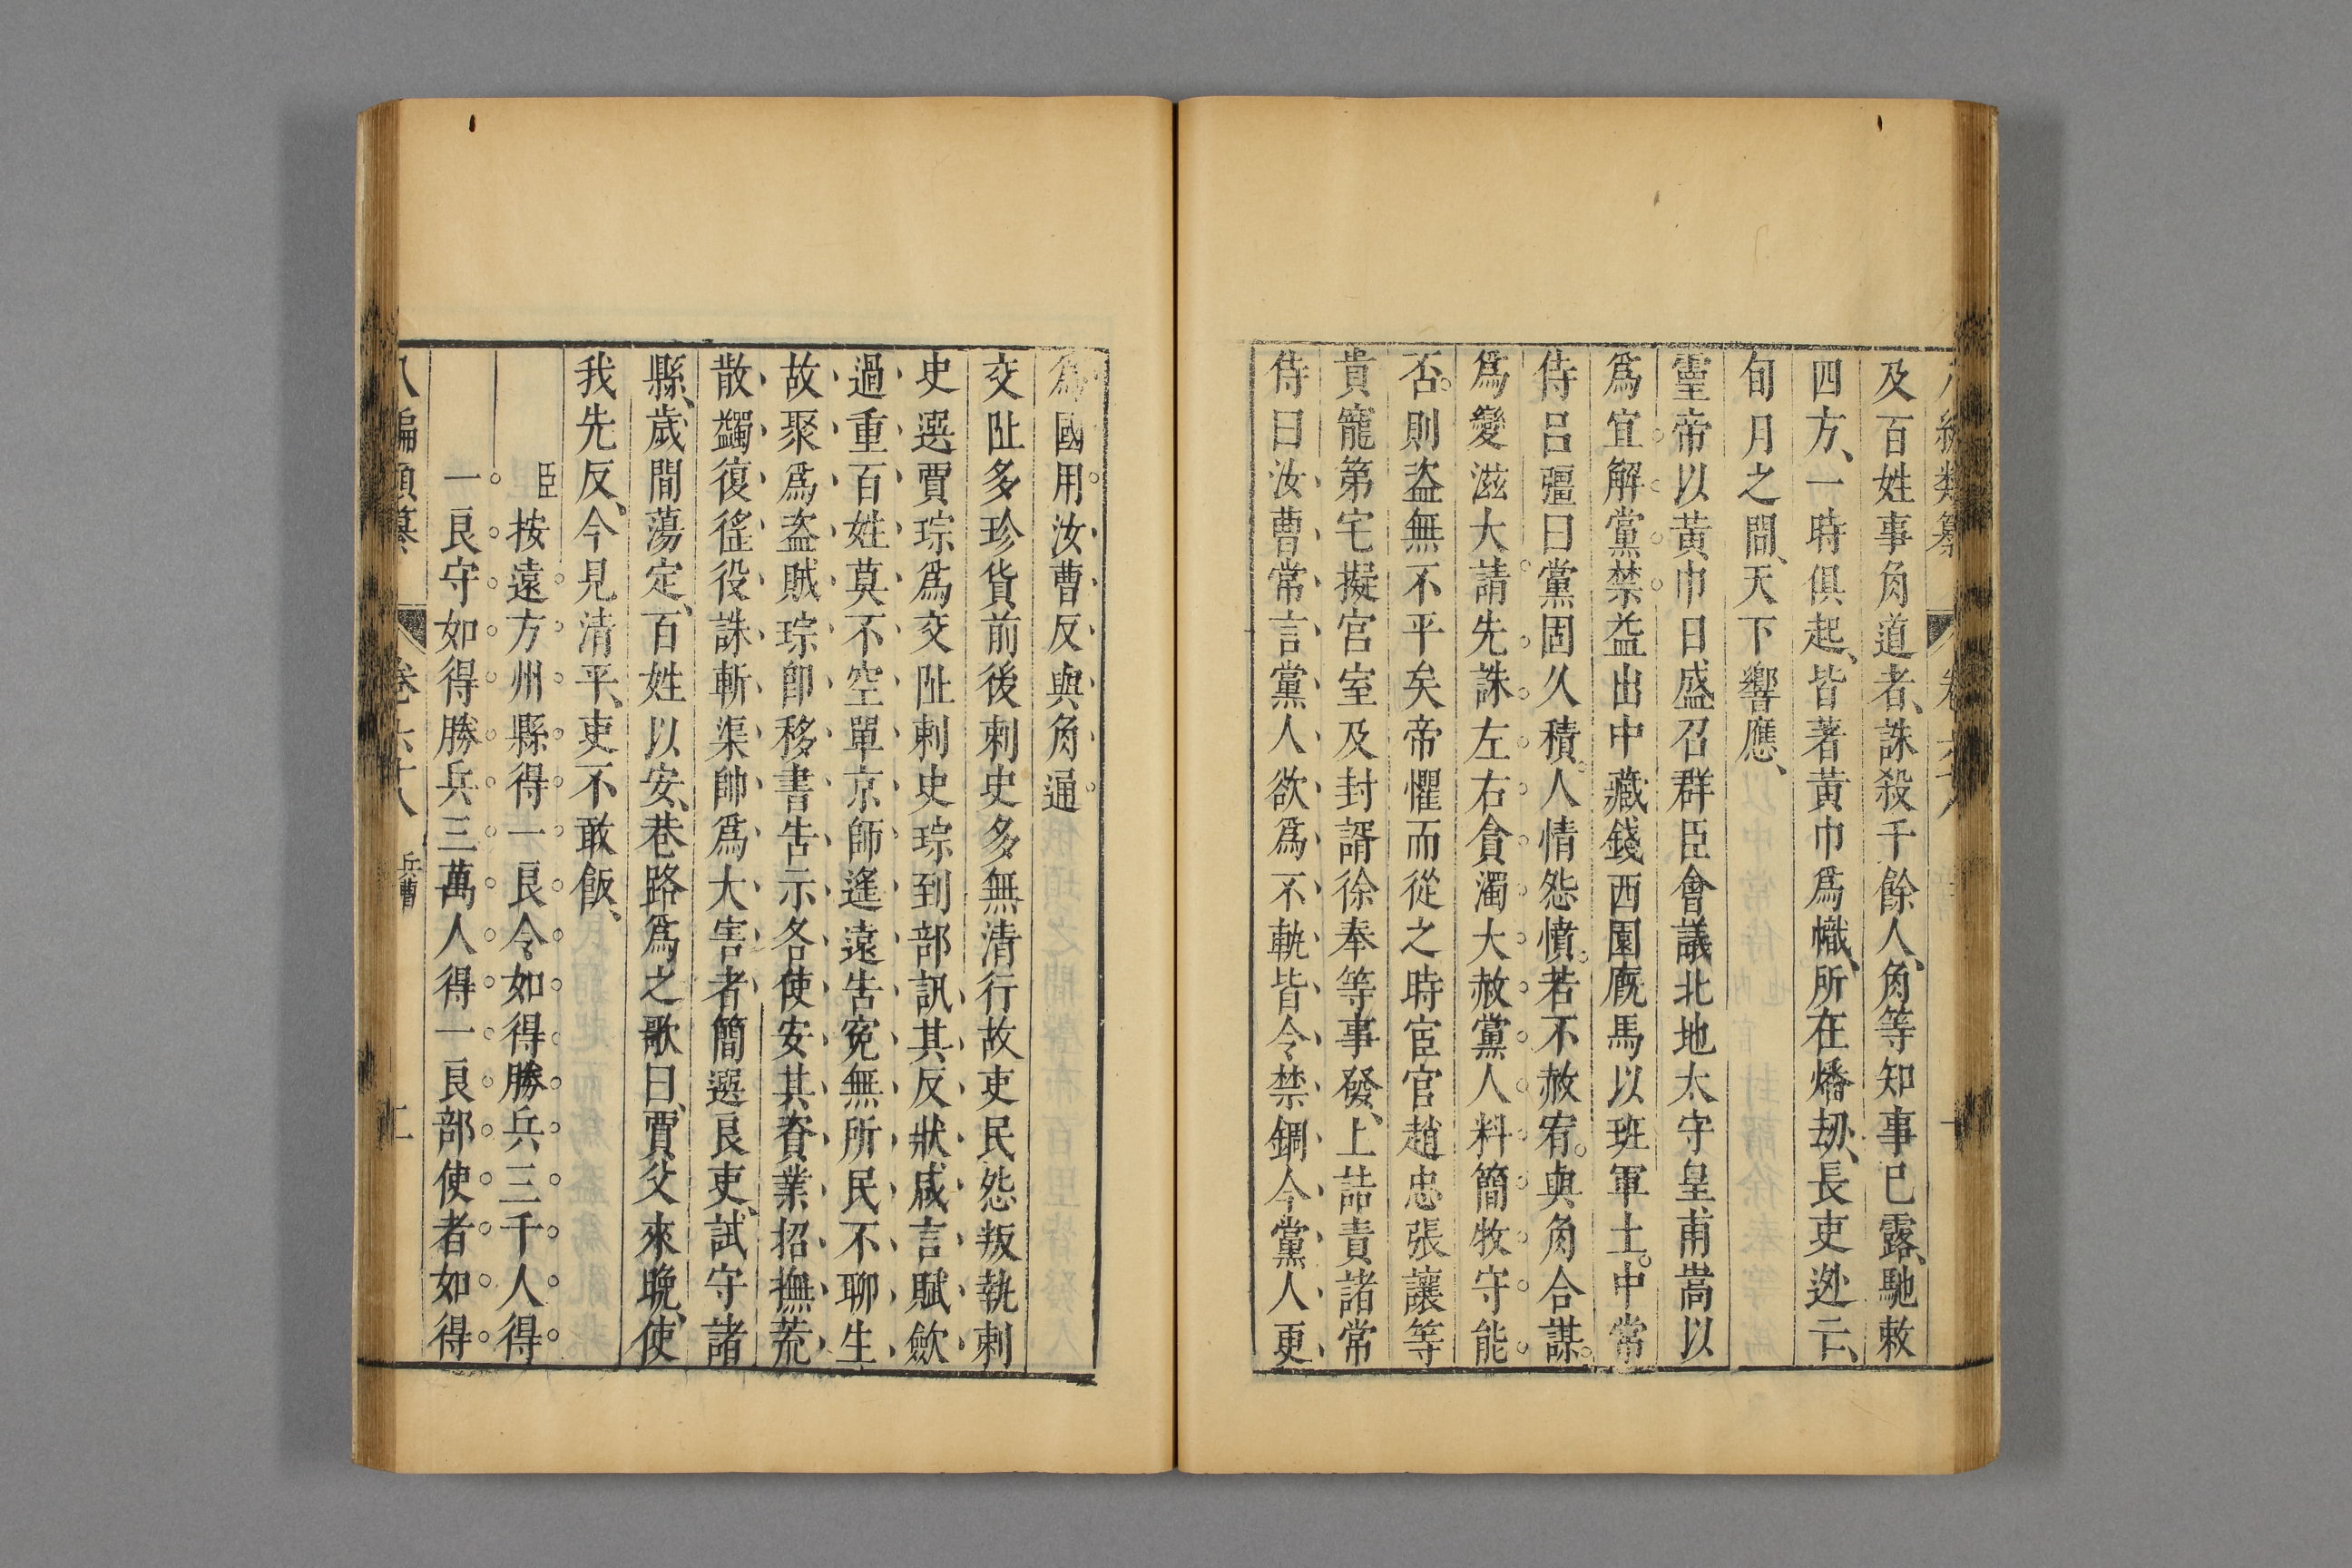 及百姓事角道者、誅殺千餘人、角等知事已露、馳敕
四方、一時俱起、皆著黃巾爲幟、所在燔刼、長吏迯亡、
旬月之間、天下響應、
靈帝以黃巾日盛召群臣會議北地太守皇甫嵩以
爲宜解黨禁益出中藏錢西園廐馬以班軍士。中常
侍呂彊曰黨固久積。人情怨憤。若不赦宥。與角合謀。
爲變滋大請先誅左右貪濁大赦黨人料簡牧守能
否。則盗無不平矣帝懼而從之時宦官趙忠張讓等
貴寵第宅擬宮室及封諝徐奉等事發、上詰責諸常
侍曰汝曹常言黨人欲爲不軌皆令禁錮今黨人更
爲國用汝曹反與角通
交阯多珍貨前後刺史多無清行故吏民怨叛執刺
史選賈琮爲交阯刺史琮到部訊其反狀咸言賦歛
過重百姓莫不空單京師遙遠告寃無所民不聊生
故聚爲盗賊琮卽移書告示各使安其資業招撫荒
散蠲復徭役誅斬渠帥爲大害者簡選良吏、試守諸
縣、歲間蕩定、百姓以安、巷路爲之歌曰、賈父來晚、使
我先反、今見清平、吏不敢飯、
臣按遠方州縣得一良令如得勝兵三千人得
一良守如得勝兵三萬人得一良部使者如得
八編類纂 卷六十八 兵曹